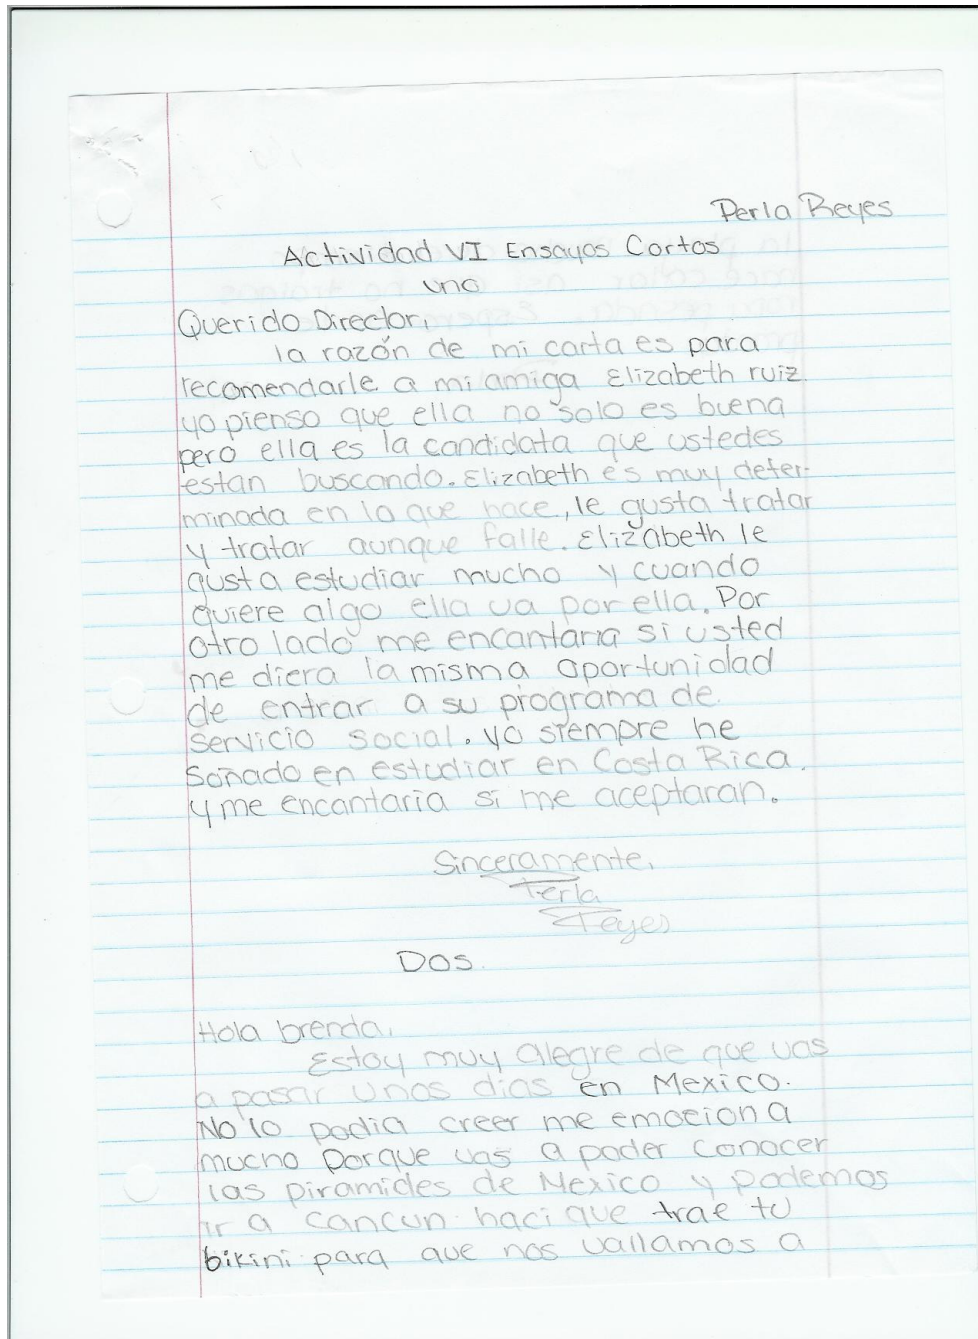 Perla Reyes
Actividad VI Ensayos Cortos
uno
Querido Director,
la razón de mi carta es para
recomendarle a mi amiga Elizabeth ruiz.
yo pienso que ella no solo es buena
pero ella es la candidata que ustedes
estan buscando. Elizabeth es muy deter-
minada en lo que hace, le gusta tratar
y tratar aunque falle. Elizabeth le
gusta estudiar mucho y cuando
quiere algo ella va por ella. Por
otro lado me encantaria si usted
me diera la misma oportunidad
de entrar a su programa de
servicio social. yo siempre he
soñado en estudiar en Costa Rica.
y me encantaria si me aceptaran.
Sinceramente,
Perla
Reyes
Dos.
Hola brenda,
Estoy muy alegre de que vas
a pasar unos dias en Mexico.
No lo podia creer me emociona
mucho porque vas a poder conocer
las piramides de Mexico y podemos
ir a cancun haci que trae tu
bikini para que nos vallamos a